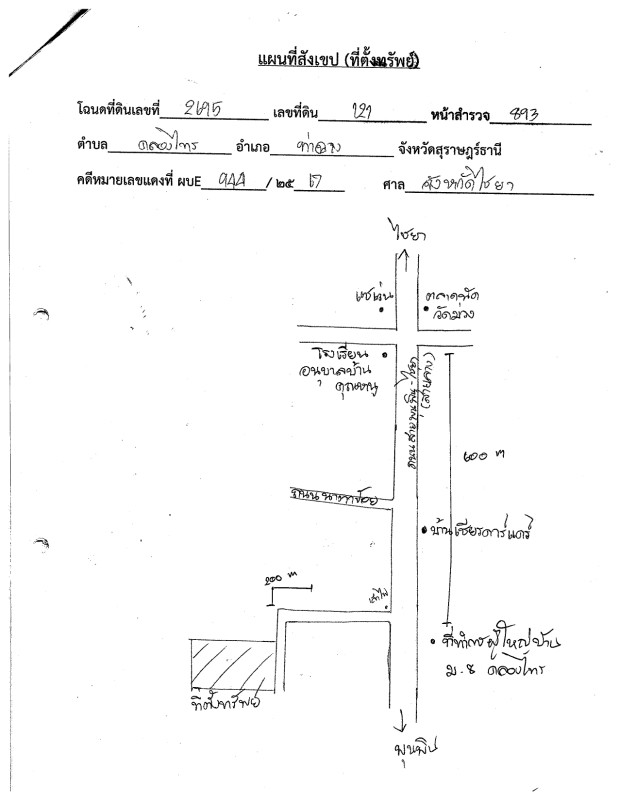 แผนที่สังเขป (ที่ตั้งทรัพย์)
โฉนดที่ดินเลขที่ 2695 เลขที่ดิน 121 หน้าสำรวจ 893
ตำบล คลองไทร อำเภอ ท่าฉาง จังหวัดสุราษฎร์ธานี
คดีหมายเลขแดงที่ ผบE 944 / ๒๕ 67 ศาล จังหวัดไชยา
ไชยา
เซเว่น
ตลาดนัด
วัดม่วง
โรงเรียน
อนุบาลบ้าน
คุณหนู
ถนนสายพุนพิน-ไชยา
(สายล่าง)
600 m
ถนน
บ้านเชียรการ์เดร์
200 m
เสาไฟ
ที่ทำการผู้ใหญ่บ้าน
ม.8 คลองไทร
ที่ตั้งทรัพย์
พุนพิน